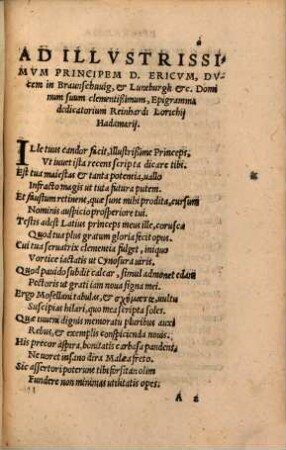 AD ILLVSTRISSI
MVM PRINCIPEM D. ERICVM, DV-
cem in Braunschuuig, & Luneburgh &c. Domi
num suum clementißimum, Epigramma
dedicatorium Reinhardi Lorichij
Hadamarij.
ILle tuus candor facit, Illustrißime Princeps,
Vt iuuet ista recens scripta dicare tibi.
Est tua maiestas & tanta potentia, uallo
Infracto magis ut tuta futura putem.
Et faustum retinent, quæ sunt mihi prodita, cursum
Nominis auspicio prosperiore tui.
Testis adest Latius princeps meus ille, corusca
Quod tua plus gratum gloria fecit opus.
Cui tua seruatrix clementia fulget, iniquo
Vortice iactatis ut Cynosura uiris.
Quod pauido subdit calcar, simul admonet edam
Pectoris ut grati iam noua signa mei.
Ergo Mosellani tabulas, & σχήματα, uultu
Suscipias hilari, quo mea scripta soles.
Quæ iuuem dignis memoratu pluribus auxi
Rebus, & exemplis conspicienda nouis.
His precor aspira, bonitatis carbasa pandens,
Ne uoret insano dira Malæa freto.
Sic assertori poterunt tibi forsitan olim
Fundere non minimas utilitatis opes.
A 2